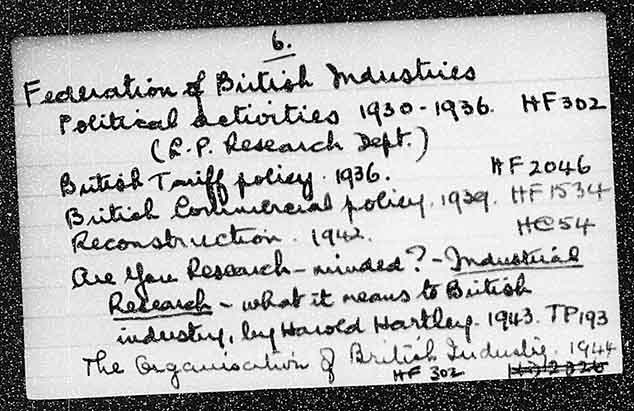 6.
Federation of British Industries
Political activities 1930-1936. HF302
(L.P. Research Dept.)
British Tariff policy. 1936. HF2046
British Commercial policy. 1939. HF1534
Reconstruction. 1942. HC54
Are You Research-minded? - Industrial
Research - what it means to British
industry, by Harold Hartley. 1943. TP193
The Organisation of British Industry. 1944
HF 302